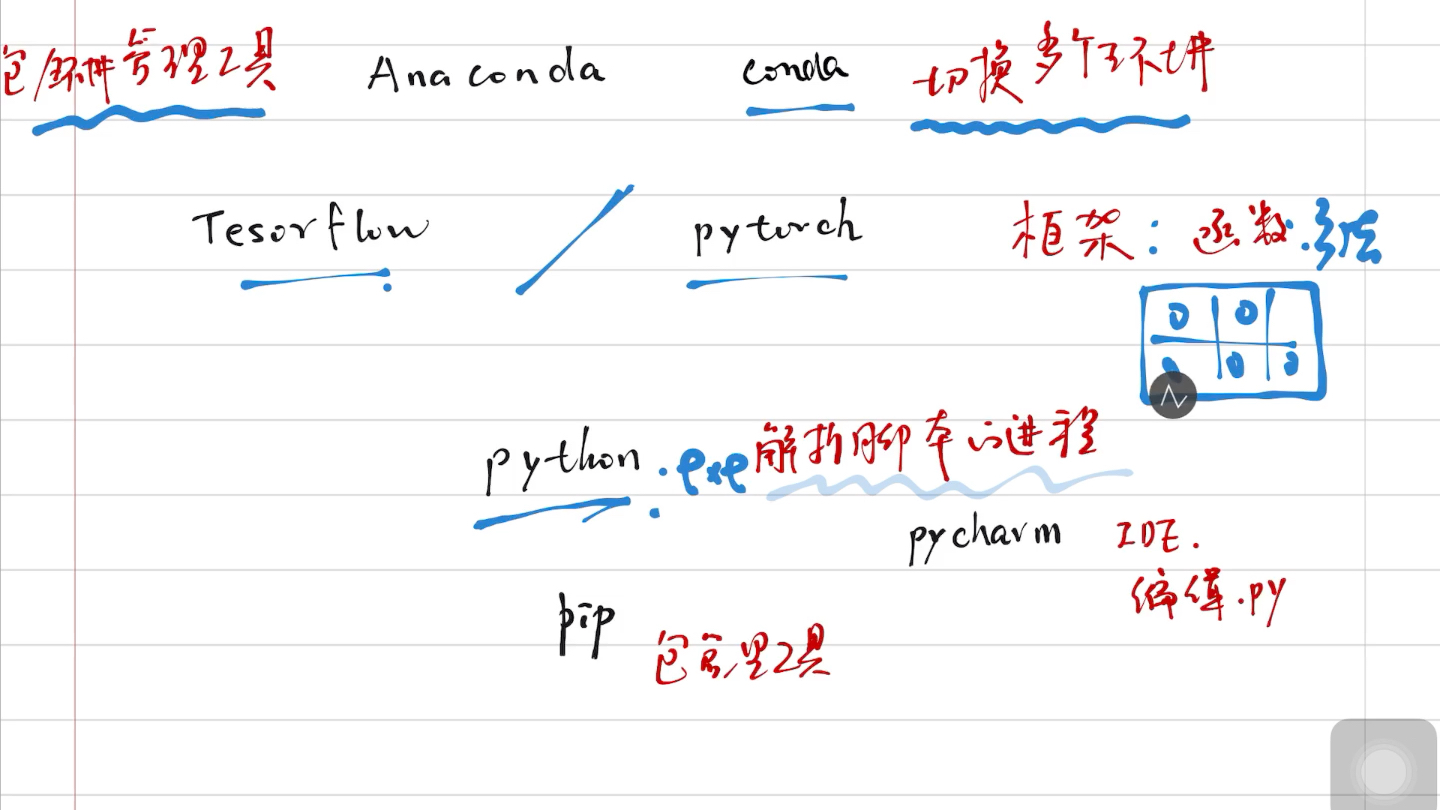 包/环境管理工具 Anaconda conda 切换多个环境
Tesorflow / pytorch 框架：函数.方法
0 0
0 0
python.exe 解析脚本的进程
pycharm IDE.
编译.py
pip 包管理工具